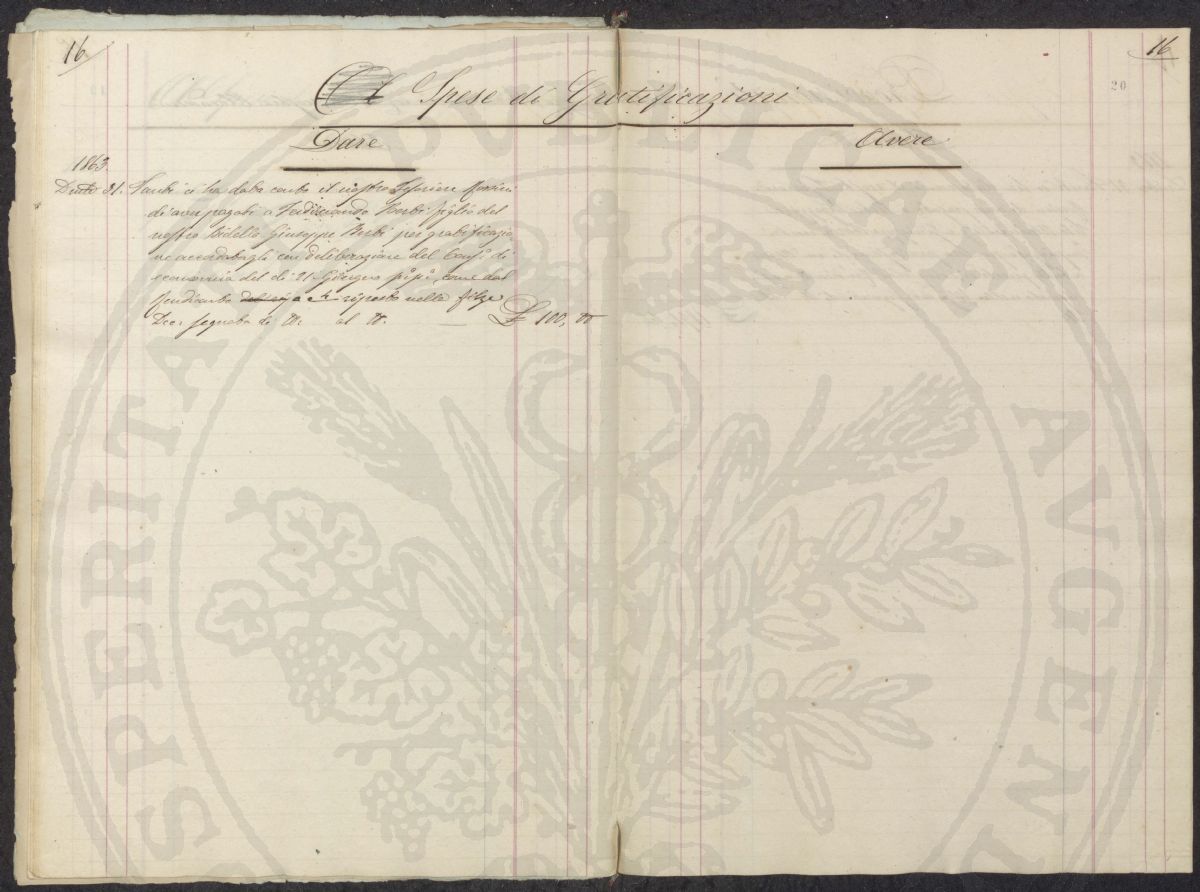 16
16
20
Spese di Gratificazioni
Dare
Avere
1863
31. Tanti ci ha dato conto il nostro
di aver pagati a Ferdinando Berti figlio del
nostro Bidello Giuseppe Berti per gratificazio
ne accordatagli con deliberazione del Consi: di
economia del dì 21 Giugno p:p: come dal
Mandato riposto nelle filze
Doc: segnato di N: al N. £ 100, "
PUBLICAE
PROSPERITATI
AVGENDAE